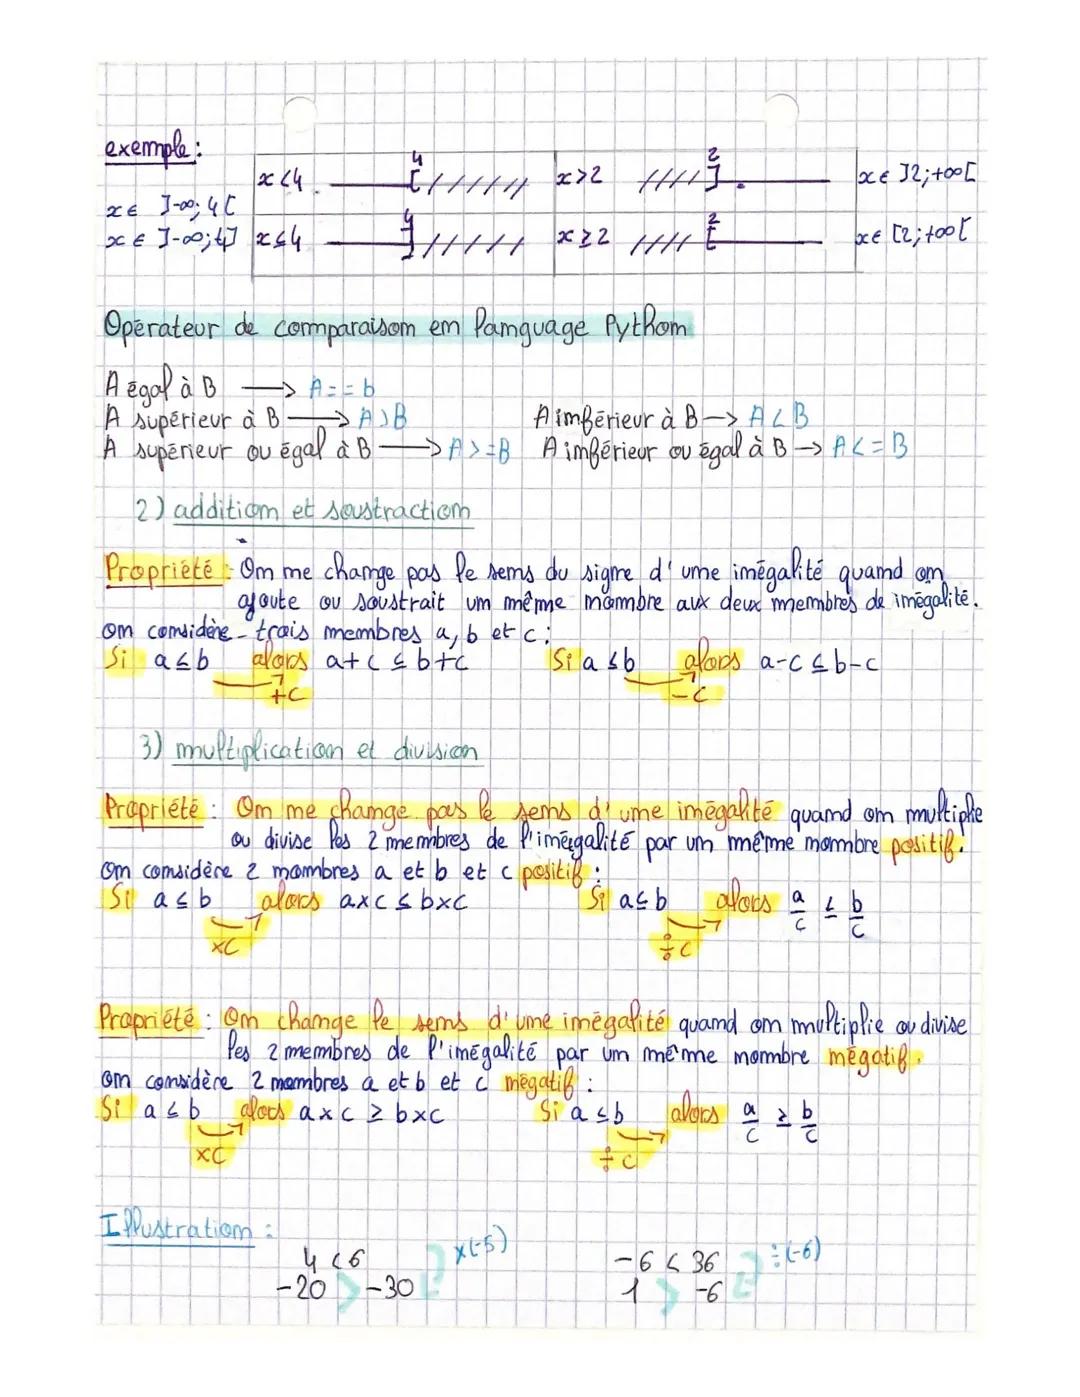 exemple :
x<4 4 [ x>2 2 ] x∈ ]2;+∞[
x∈ ]-∞; 4[
x∈ ]-∞;4] x≤4 4 ] x≥2 2 [ x∈ [2;+∞[
Opérateur de comparaison en language Python
A égal à B → A==b
A supérieur à B → A>B A inférieur à B → A<B
A supérieur ou égal à B → A>=B A inférieur ou égal à B → A<=B
2) addition et soustraction
Propriété : On ne change pas le sens du signe d'une inégalité quand on
ajoute ou soustrait un même nombre aux deux membres de inégalité.
on considère trois membres a, b et c :
Si a≤b alors a+c≤b+c Si a≤b alors a-c≤b-c
+c -c
3) multiplication et division
Propriété : On ne change pas le sens d'une inégalité quand on multiplie
ou divise les 2 membres de l'inégalité par un même nombre positif.
on considère 2 nombres a et b et c positif :
Si a≤b alors a×c≤b×c Si a≤b alors a/c ≤ b/c
×c ÷c
Propriété : On change le sens d'une inégalité quand on multiplie ou divise
les 2 membres de l'inégalité par un même nombre négatif.
on considère 2 nombres a et b et c négatif :
Si a≤b alors a×c≥b×c Si a≤b alors a/c ≥ b/c
×c ÷c
Illustration :
4<6 ×(-5) -6<36 ÷(-6)
-20 > -30 1 > -6